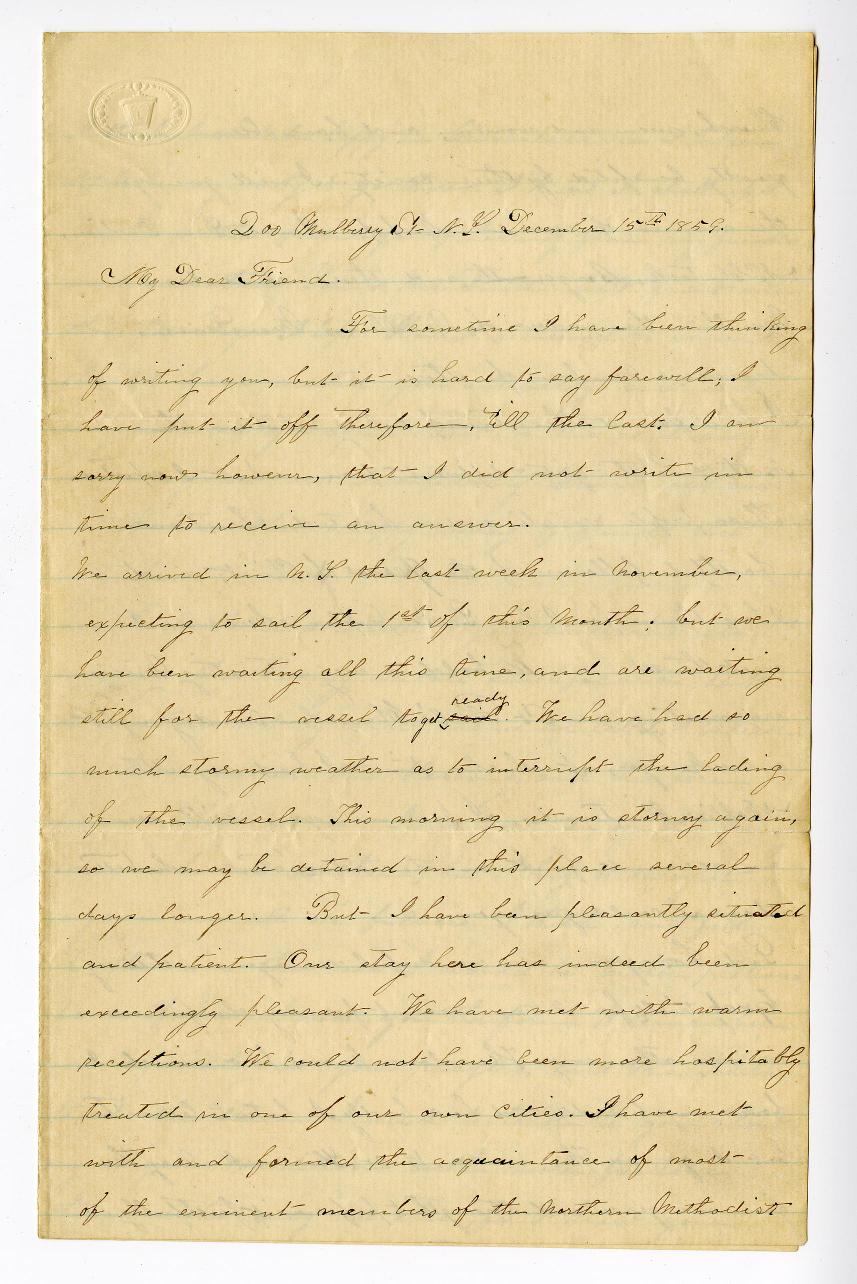 200 Mulberry St N.Y. December 15th 1859.
My Dear Friend.
For sometime I have been thinking
of writing you, but it is hard to say farewell; I
have put it off therefore, 'till the last. I am
sorry now however, that I did not write in
time to receive an answer.
We arrived in N.Y. the last week in November,
expecting to sail the 1st of this Month; but we
have been waiting all this time, and are waiting
still for the vessel to get sail ready. We have had so
much stormy weather as to interrupt the lading
of the vessel. This morning it is stormy again,
so we may be detained in this place several
days longer. But I have been pleasantly situated
and patient. Our stay here has indeed been
exceedingly pleasant. We have met with warm
receptions. We could not have been more hospitably
treated in one of our own Cities. I have met
with and formed the acquaintance of most
of the eminent members of the Northern Methodist